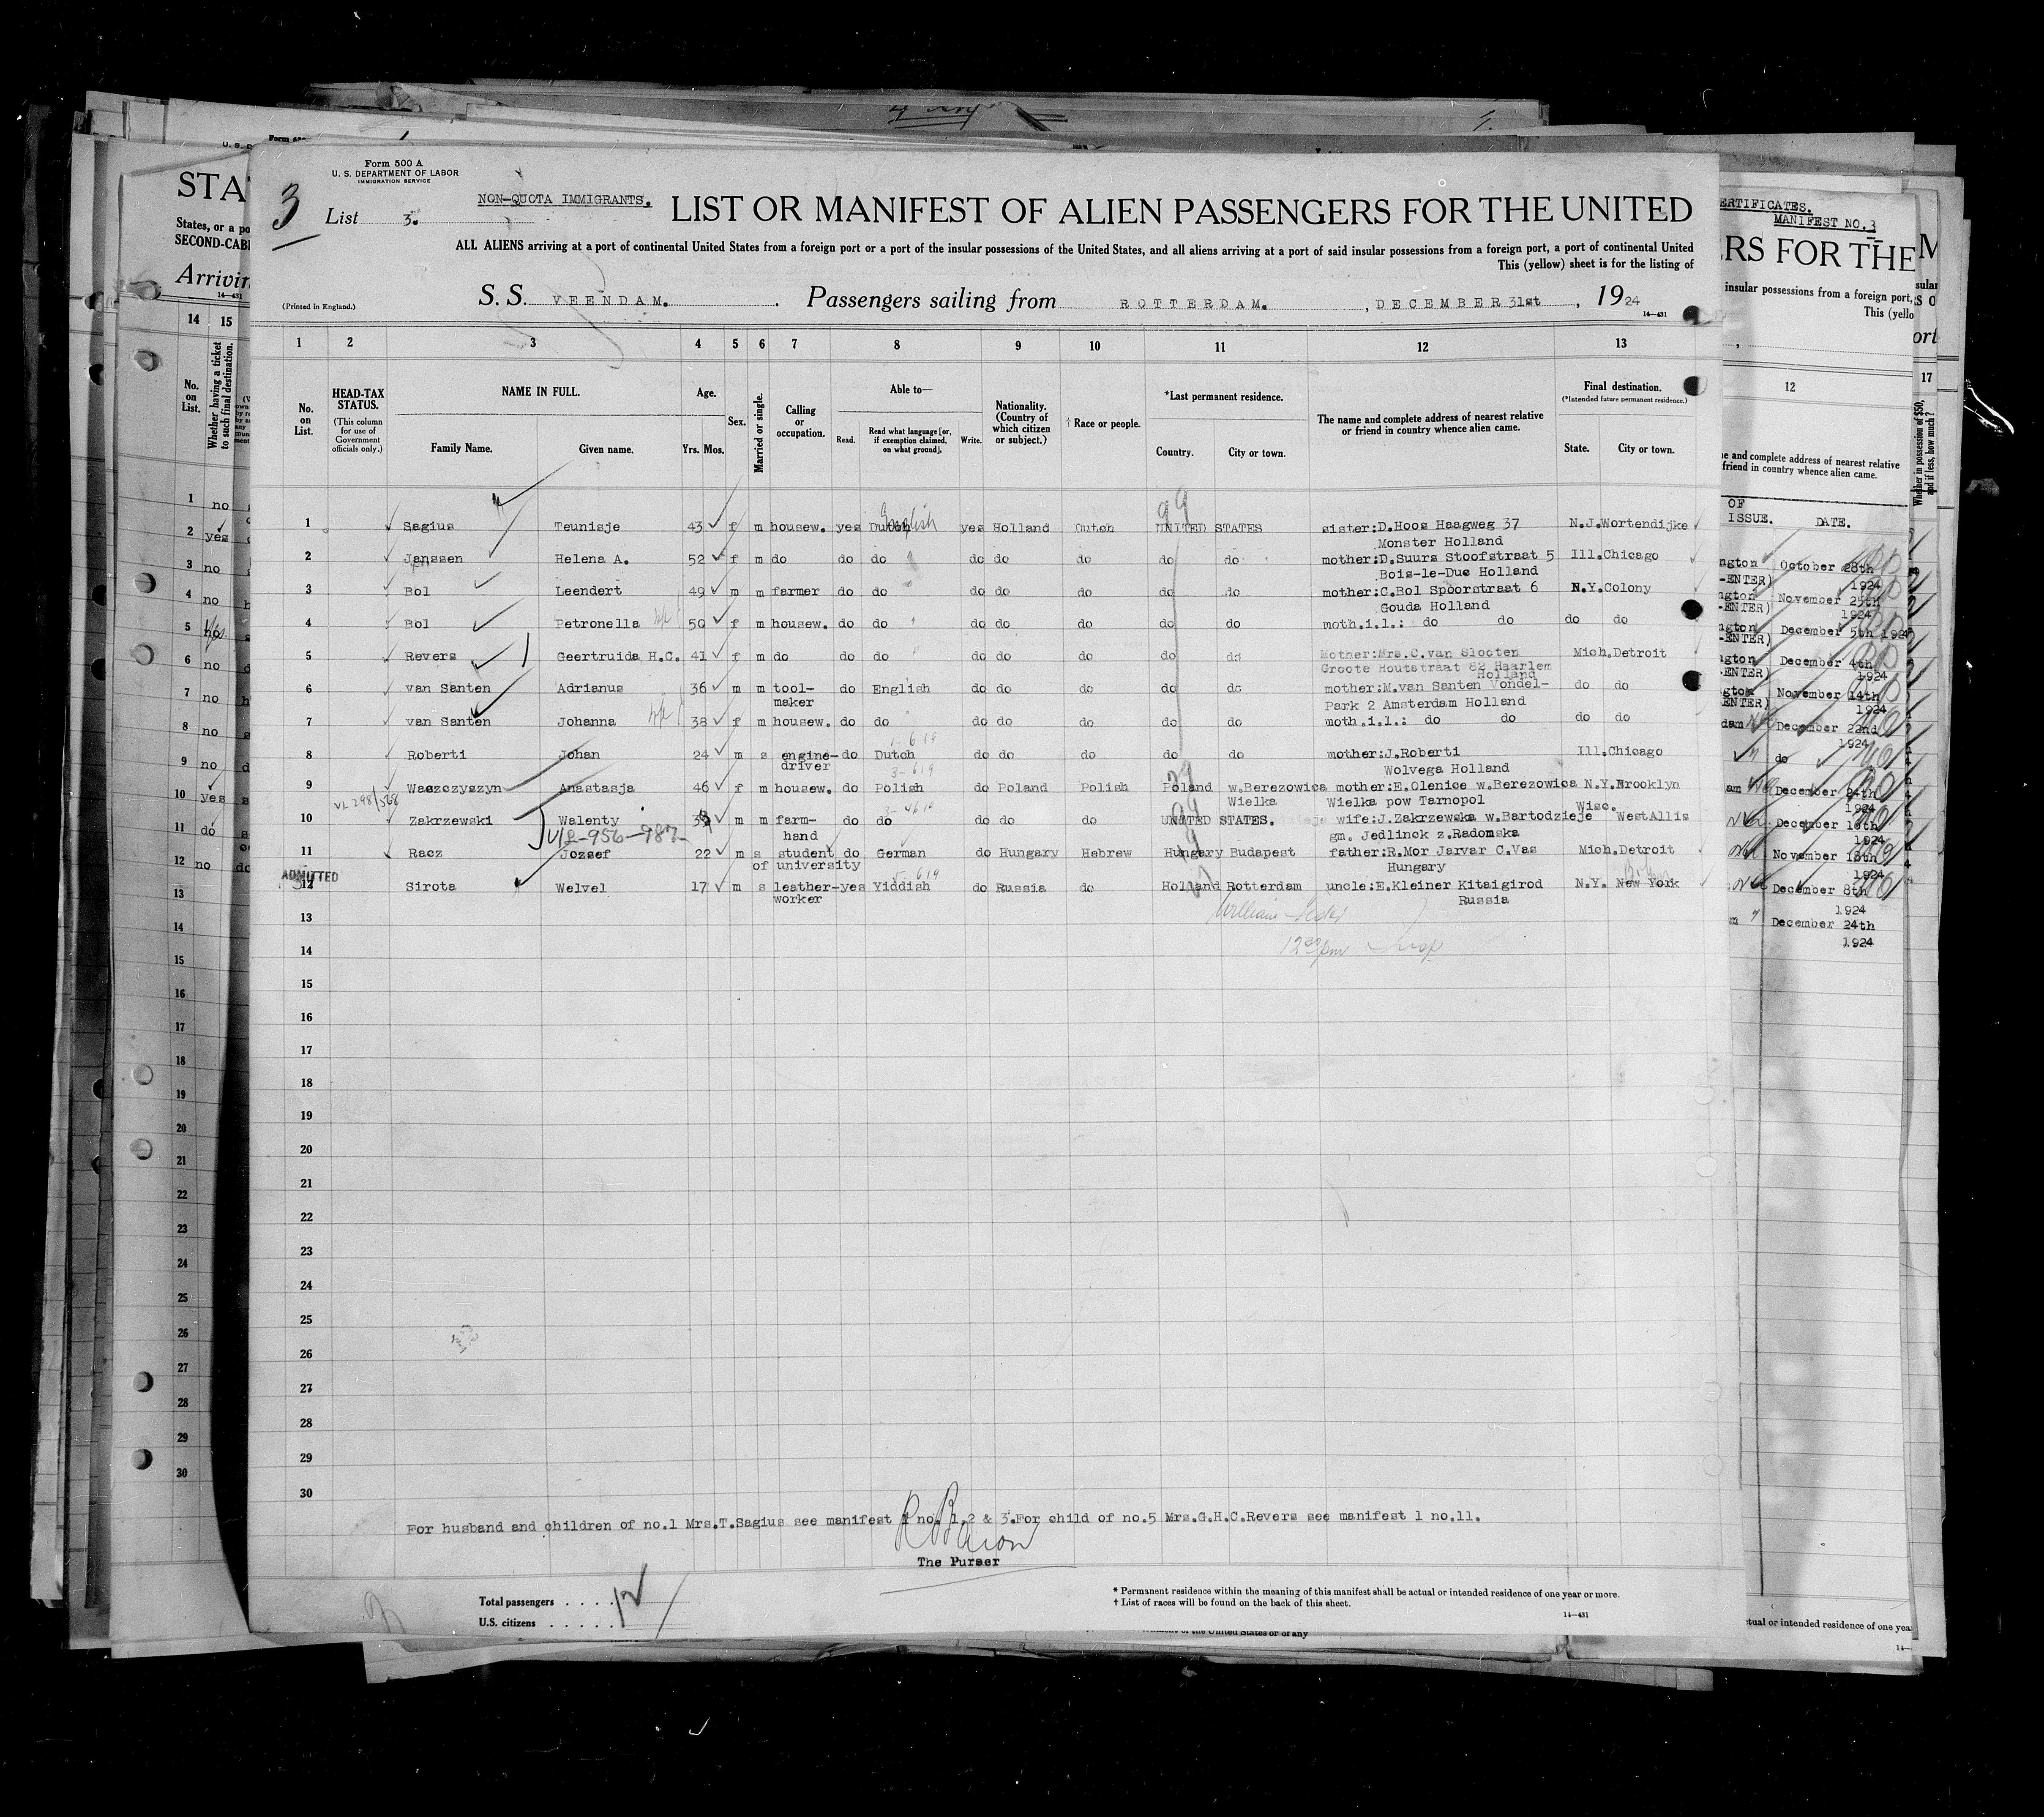 Form 500 A
U. S. DEPARTMENT OF LABOR
IMMIGRATION SERVICE
3
List 3.
NON-QUOTA IMMIGRANTS.
LIST OR MANIFEST OF ALIEN PASSENGERS FOR THE UNITED
ALL ALIENS arriving at a port of continental United States from a foreign port or a port of the insular possessions of the United States, and all aliens arriving at a port of said insular possessions from a foreign port, a port of continental United
This (yellow) sheet is for the listing of
(Printed in England.)
S. S. VEENDAM. Passengers sailing from ROTTERDAM. , DECEMBER 31st , 1924
14—431
1 2 3 4 5 6 7 8 9 10 11 12 13
No. on List.
HEAD-TAX STATUS.
(This column for use of Government officials only.)
NAME IN FULL.
Family Name. Given name.
Age.
Yrs. Mos.
Sex.
Married or single.
Calling or occupation.
Able to—
Read. Read what language [or, if exemption claimed, on what ground]. Write.
Nationality. (Country of which citizen or subject.)
† Race or people.
*Last permanent residence.
Country. City or town.
The name and complete address of nearest relative or friend in country whence alien came.
Final destination.
(*Intended future permanent residence.)
State. City or town.
1 Sagius Teunisje 43 f m housew. yes Dutch English yes Holland Dutch UNITED STATES sister:D.Hoos Haagweg 37 N.J.Wortendijke
Monster Holland
2 Janssen Helena A. 52 f m do do do do do do do do mother:D.Suurs Stoofstraat 5 Ill.Chicago
Bois-le-Duc Holland
3 Bol Leendert 49 m m farmer do do do do do do do mother:C.Bol Spoorstraat 6 N.Y.Colony
Gouda Holland
4 Bol Petronella 50 f m housew. do do do do do do do moth.i.l.: do do do do
5 Revers Geertruida H.C. 41 f m do do do do do do do do Mother:Mrs.C.van Slooten Mich.Detroit
Groote Houtstraat 82 Haarlem
Holland
6 van Santen Adrianus 36 m m tool- do English do do do do do mother:M.van Santen Vondel- do do
maker Park 2 Amsterdam Holland
7 van Santen Johanna 38 f m housew. do do do do do do do moth.i.l.: do do do do
8 Roberti Johan 24 m s engine- do Dutch do do do do do mother:J.Roberti Ill.Chicago
driver Wolvega Holland
9 Waszczyszyn Anastasja 46 f m housew. do Polish do Poland Polish Poland w.Berezowica mother:E.Olenice w.Berezowica N.Y.Brooklyn
Wielka Wielka pow Tarnopol
10 Zakrzewski Walenty m m farm- do do do do do UNITED STATES. wife:J.Zakrzewska w.Bartodzieje Wisc. WestAllis
hand gm. Jedlinck z.Radomska
11 Racz Jozsef 22 m s student do German do Hungary Hebrew Hungary Budapest father:R.Mor Jarvar C.Vas Mich.Detroit
of university Hungary
ADMITTED
12 Sirota Welvel 17 m s leather- yes Yiddish do Russia do Holland Rotterdam uncle:E.Kleiner Kitaigirod N.Y. New York
worker Russia
13
14
15
16
17
18
19
20
21
22
23
24
25
26
27
28
29
30
For husband and children of no.1 Mrs.T.Sagius see manifest 1 no. 1,2 & 3.For child of no.5 Mrs.G.H.C.Revers see manifest 1 no.11.
The Purser
Total passengers . . . . 12
U.S. citizens . . . . .
* Permanent residence within the meaning of this manifest shall be actual or intended residence of one year or more.
† List of races will be found on the back of this sheet.
14—431
STA
States, or a po
SECOND-CAB
Arrivin
14—431
14 15
No. on List.
Whether having a ticket to such final destination.
1 no
2 yes
3 no
4 no
5 no
6 no
7 no
8 no
9 no
10 yes
11 do
12 no
13
14
15
16
17
18
19
20
21
22
23
24
25
26
27
28
29
30
ERTIFICATES.
MANIFEST NO.3
RS FOR THE
insular possessions from a foreign port,
This (yello
12
17
Whether in possession of $50, and if less, how much?
e and complete address of nearest relative
friend in country whence alien came.
OF
ISSUE. DATE.
ngton October 28th
-ENTER) 1924
ngton November 25th
-ENTER) 1924
ngton December 5th 192
-ENTER)
ngton December 4th
-ENTER) 1924
ngton November 14th
ENTER) 1924
dam December 22nd
1924
do
am December 24th
1924
December 16th
1924
November 18th
1924
December 8th
1924
m December 24th
1924
ctual or intended residence of one yea
14—